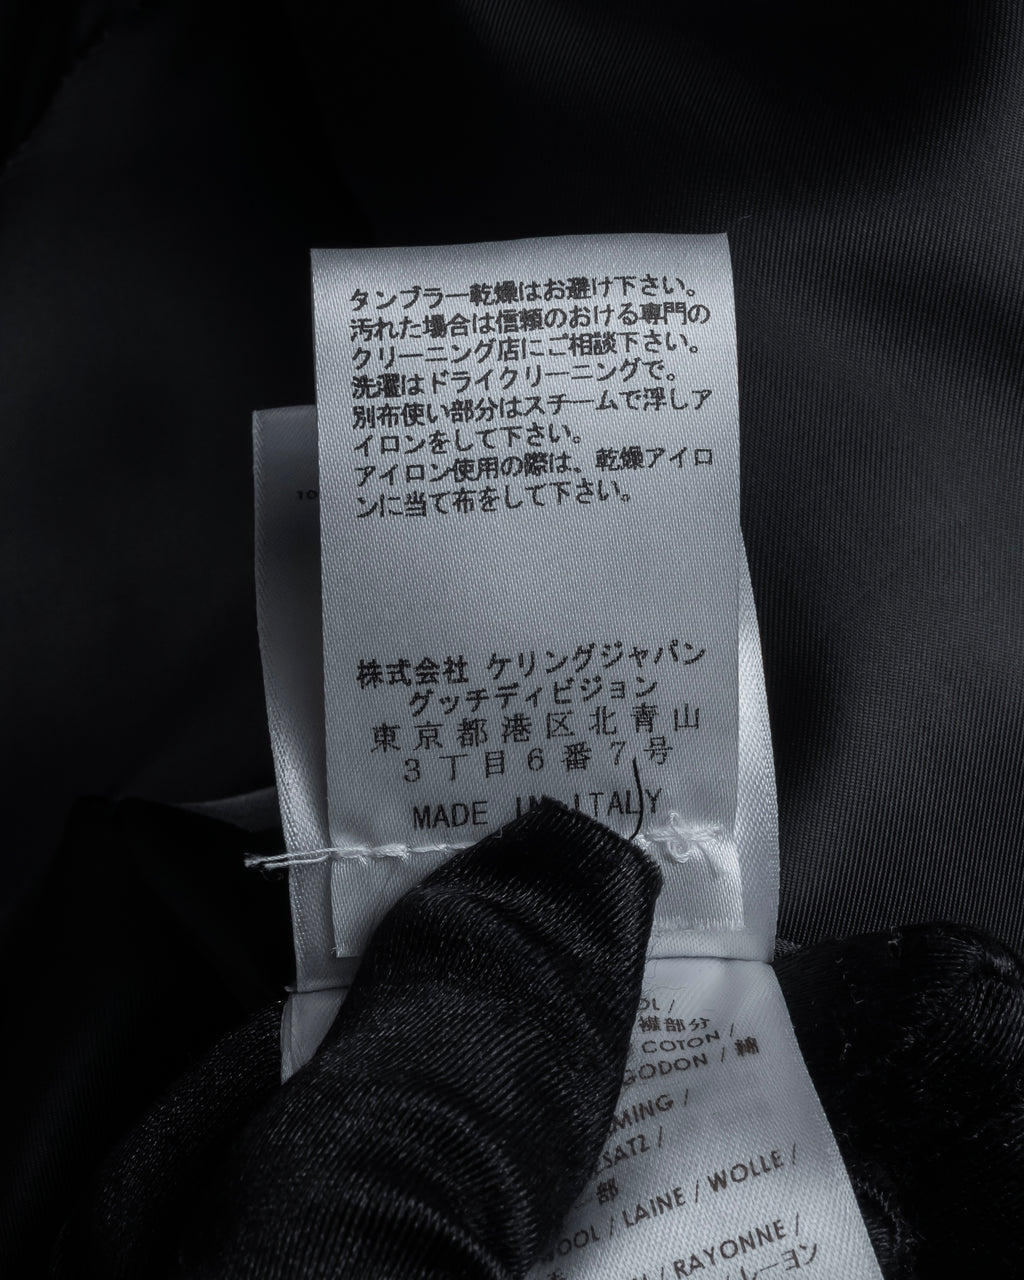 タンブラー乾燥はお避け下さい。
汚れた場合は信頼のおける専門の
クリーニング店にご相談下さい。
洗濯はドライクリーニングで。
別布使い部分はスチームで浮しア
イロンをして下さい。
アイロン使用の際は、乾燥アイロ
ンに当て布をして下さい。
10
株式会社 ケリングジャパン
グッチディビジョン
東京都港区北青山
3丁目6番7号
MADE IN ITALY
OL /
部分
COTON /
GODON / 綿
MING /
SATZ /
部
OOL / LAINE / WOLLE /
/ RAYONNE /
/ レーヨン